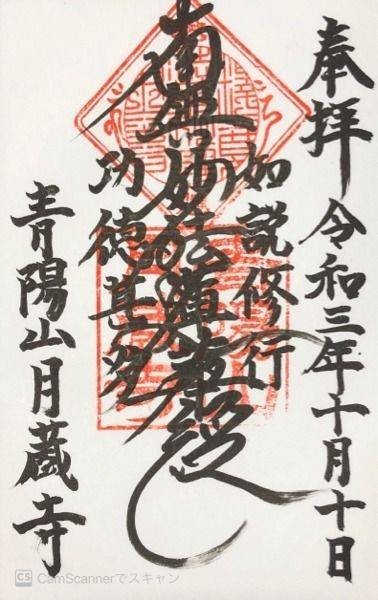 奉拝 令和三年十月十日
如説修行
南無妙法蓮華経
功徳甚多
青陽山月蔵寺
CS CamScannerでスキャン